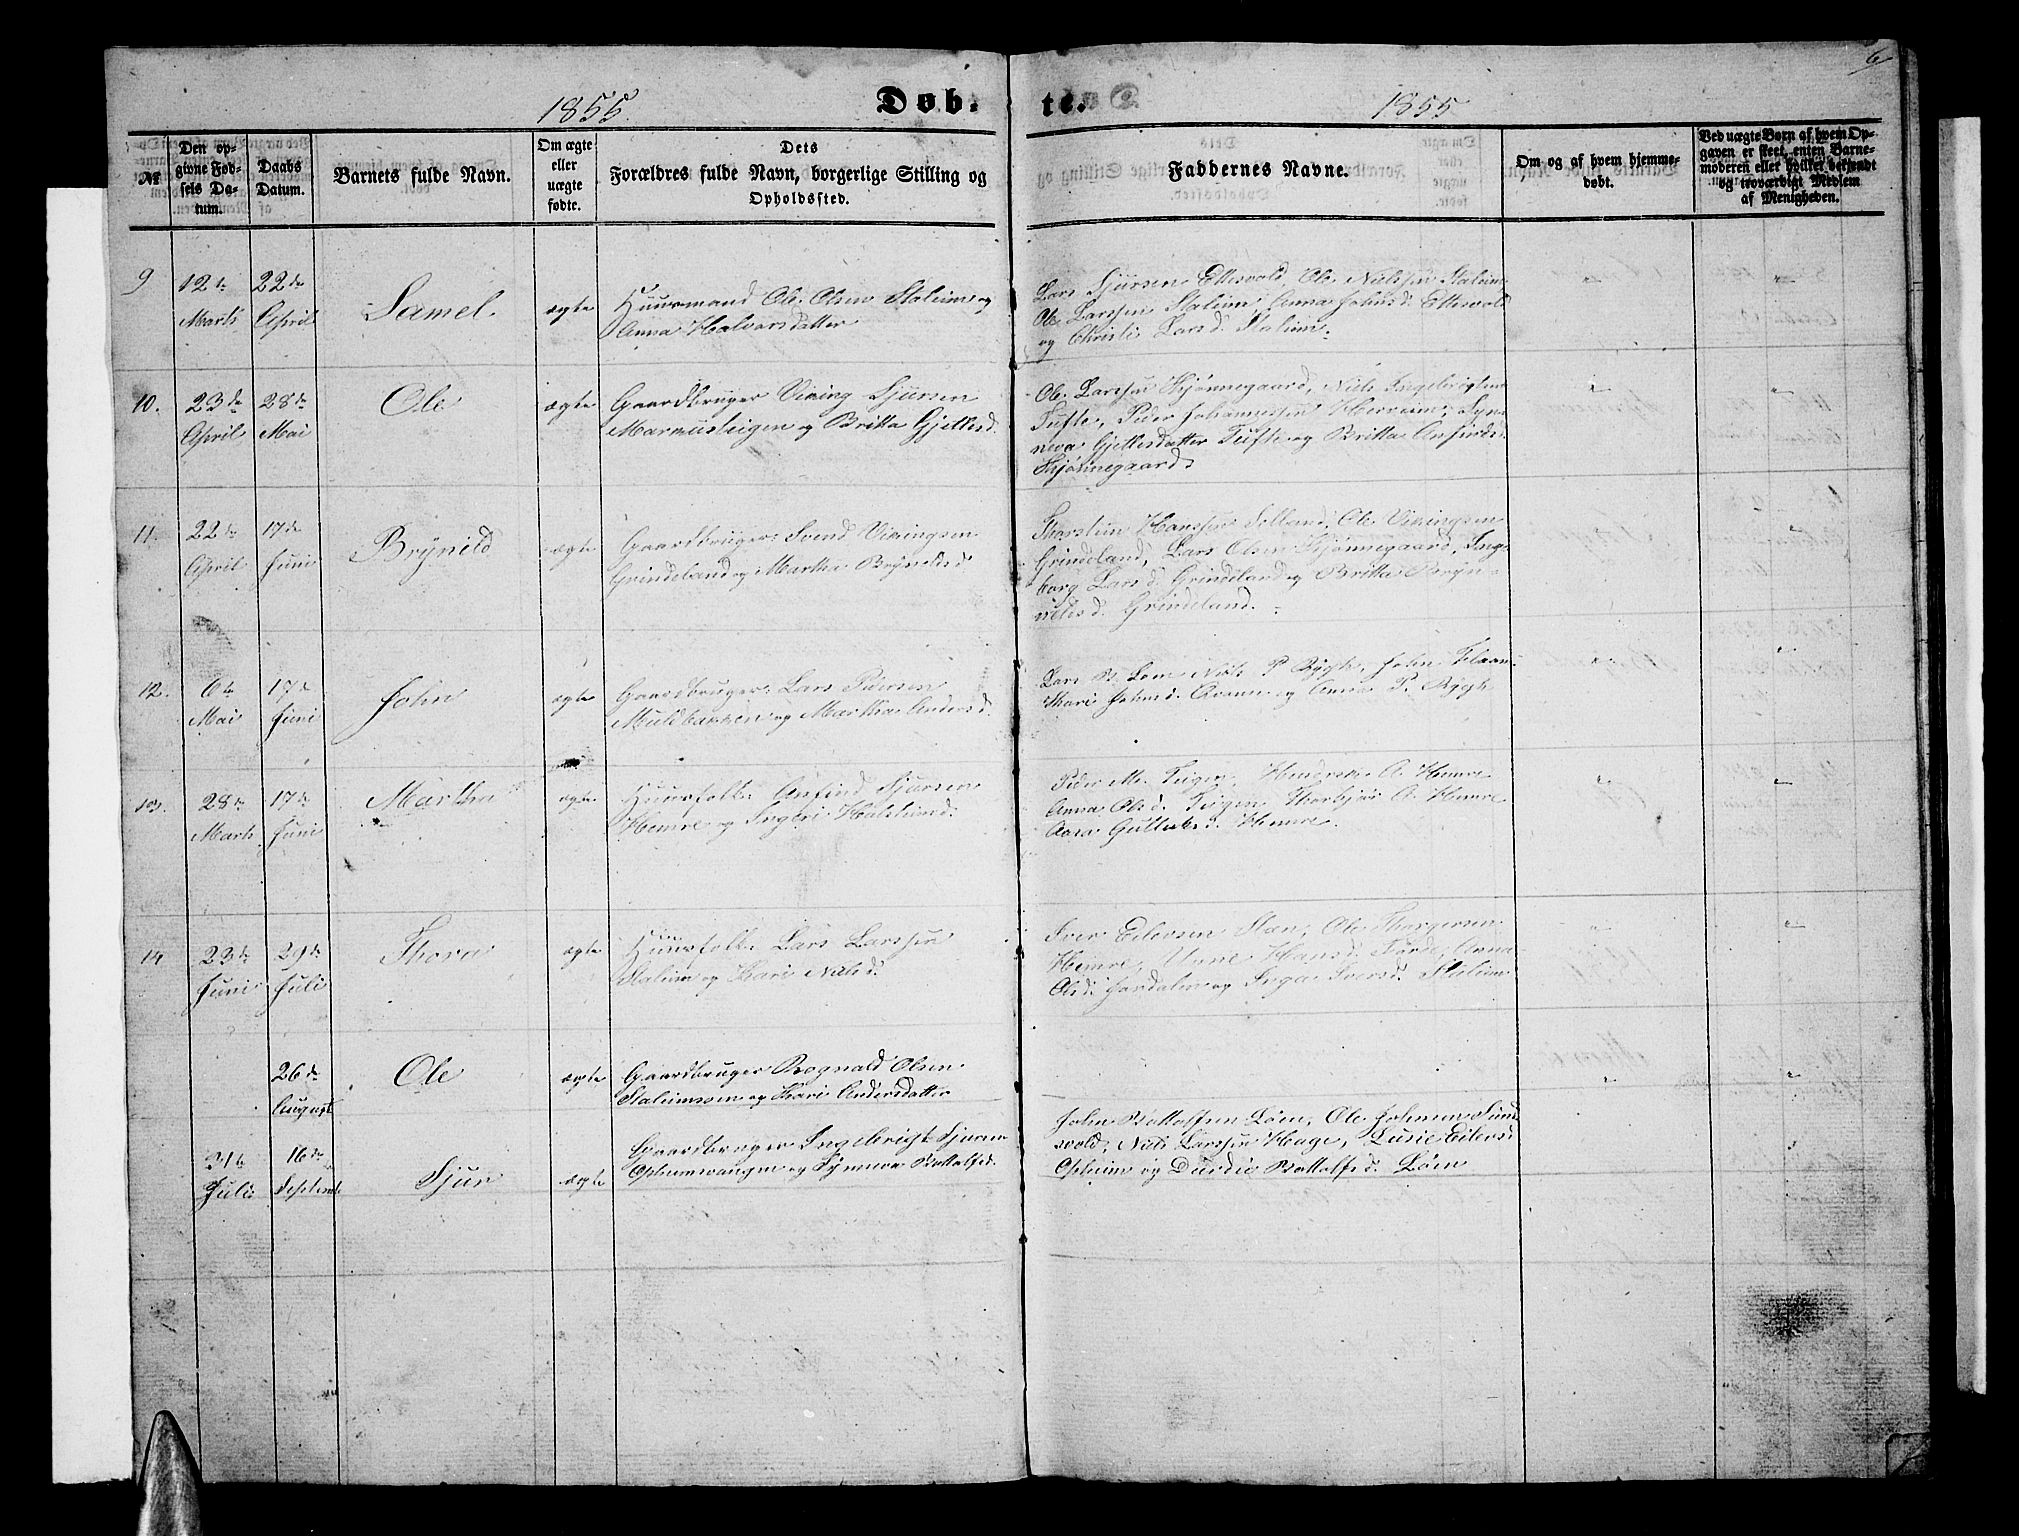 6
1855. Døb- te. 1855
№
Den op-
givne Fød-
sels Da-
tum.
Daabs
Datum.
Barnets fulde Navn.
Om ægte
eller
uægte
fødte.
Dets
Forældres fulde Navn, borgerlige Stilling og
Opholdssted.
Faddernes Navne.
Om og af hvem hjemme-
døbt.
Ved uægte Børn af hvem Op-
gaven er skeet, enten Barne-
moderen eller hvilket bekjendt
og troværdigt Medlem
af Menigheden.
9
12te
Marts
22de
April
Samel
ægte
Huusmand Ole Olsen Staleim og
Anna Halvorsdatter
Lars Sjursen Ettesvold, Ole Nielssen Staleim
Ole Larssen Staleim, Anna Johnsd. Ettesvold
og Christi Larsd. Staleim.
10.
23de
April
28de
Mai
Ole
ægte
Gaardbruger Viking Sjursen
Marmusteigen og Britta Gjellesd.
Ole Larssen Skjønnegaard, Niels Ingebrigtsen
Tufte, Peder Johannessen Herreim, Syn-
neva Gjellesdatter Tufte og Britta Anfinds.
Skjønnegaard
11.
22de
April
17de
Juni
Brynild
ægte
Gaardbruger Svend Vikingsen
Grindeland og Martha Brynelsd
Thorstein Hanssen Selland, Ole Vikingsen
Grindeland, Lars Olsen Skjønnegaard, Inge-
borg Larsd. Grindeland og Britta Bryn-
nelsd. Grindeland.
12.
6te
Mai
17de
Juni
John
ægte
Gaardbruger Lars Peersen
Muldbakken og Martha Andersd.
Lars R. Løm Niels P Rygh, John
Kari Johnsd. og Anna P. Rygh
13.
28de
Marts
17de
Juni
Martha
ægte
Huusfolk Anfind Sjursen
Hemre og Ingeri Halsteinsd.
Peder M. Teigen, Henrik A. Hemre
Anna Olsd. Teigen Thorbjør A. Hemre
Aasa Gulleiksd. Hemre.
14
23de
Juni
29de
Juli
Thora
ægte
Huusfolk Lars Larssen
Staleim og Kari Nielsd.
Iver Eilevsen Steen, Ole Thorgersen
Hemre, Unne Hansd. Førde, Anna
Olsd. Jordalen og Inga Iversd. Staleim
26de
August
Ole
ægte
Gaardbruger Rognald Olsen
Staleimsoen og Kari Andersdatter
31te
Juli
16de
September
Sjur
ægte
Gaardbruger Ingebrigt Sjursen
Opheimsvangen og Synneva Bottolfsd.
John Bottolfsen Løen, Ole Johnsen Sund-
svold, Niels Larssen Hage, Lusie Eilevsd
Opheim og Durdie Bottolfsd. Løen